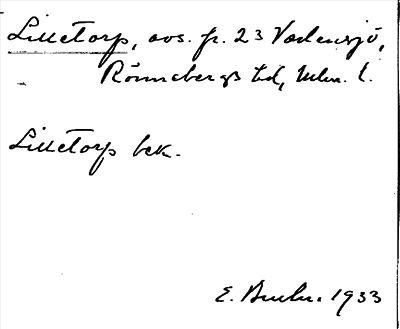 Lilletorp, avs. fr. 23 Vadensjö,
Rönnebergs hd, Mlm. l.
Lilletorp bek.
E. 1933